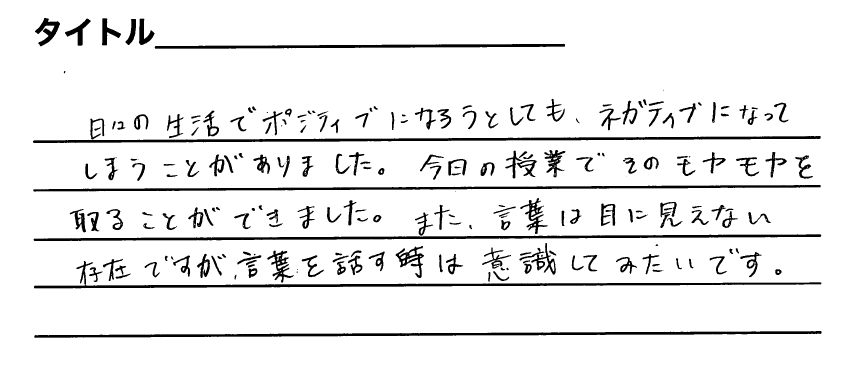 タイトル
日々の生活でポジティブになろうとしても、ネガティブになって
しまうことがありました。今日の授業でそのモヤモヤを
取ることができました。また、言葉は目に見えない
存在ですが、言葉を話す時は意識してみたいです。